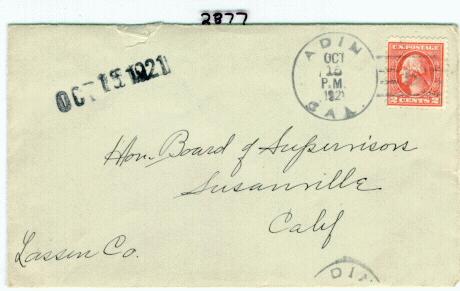 2877
OCT 15 1921
ADIN
OCT
15
P.M.
1921
CAL.
U.S. POSTAGE
2 CENTS 2
Hon. Board of Supervisors
Susanville
Calif
Lassen Co.
DIN